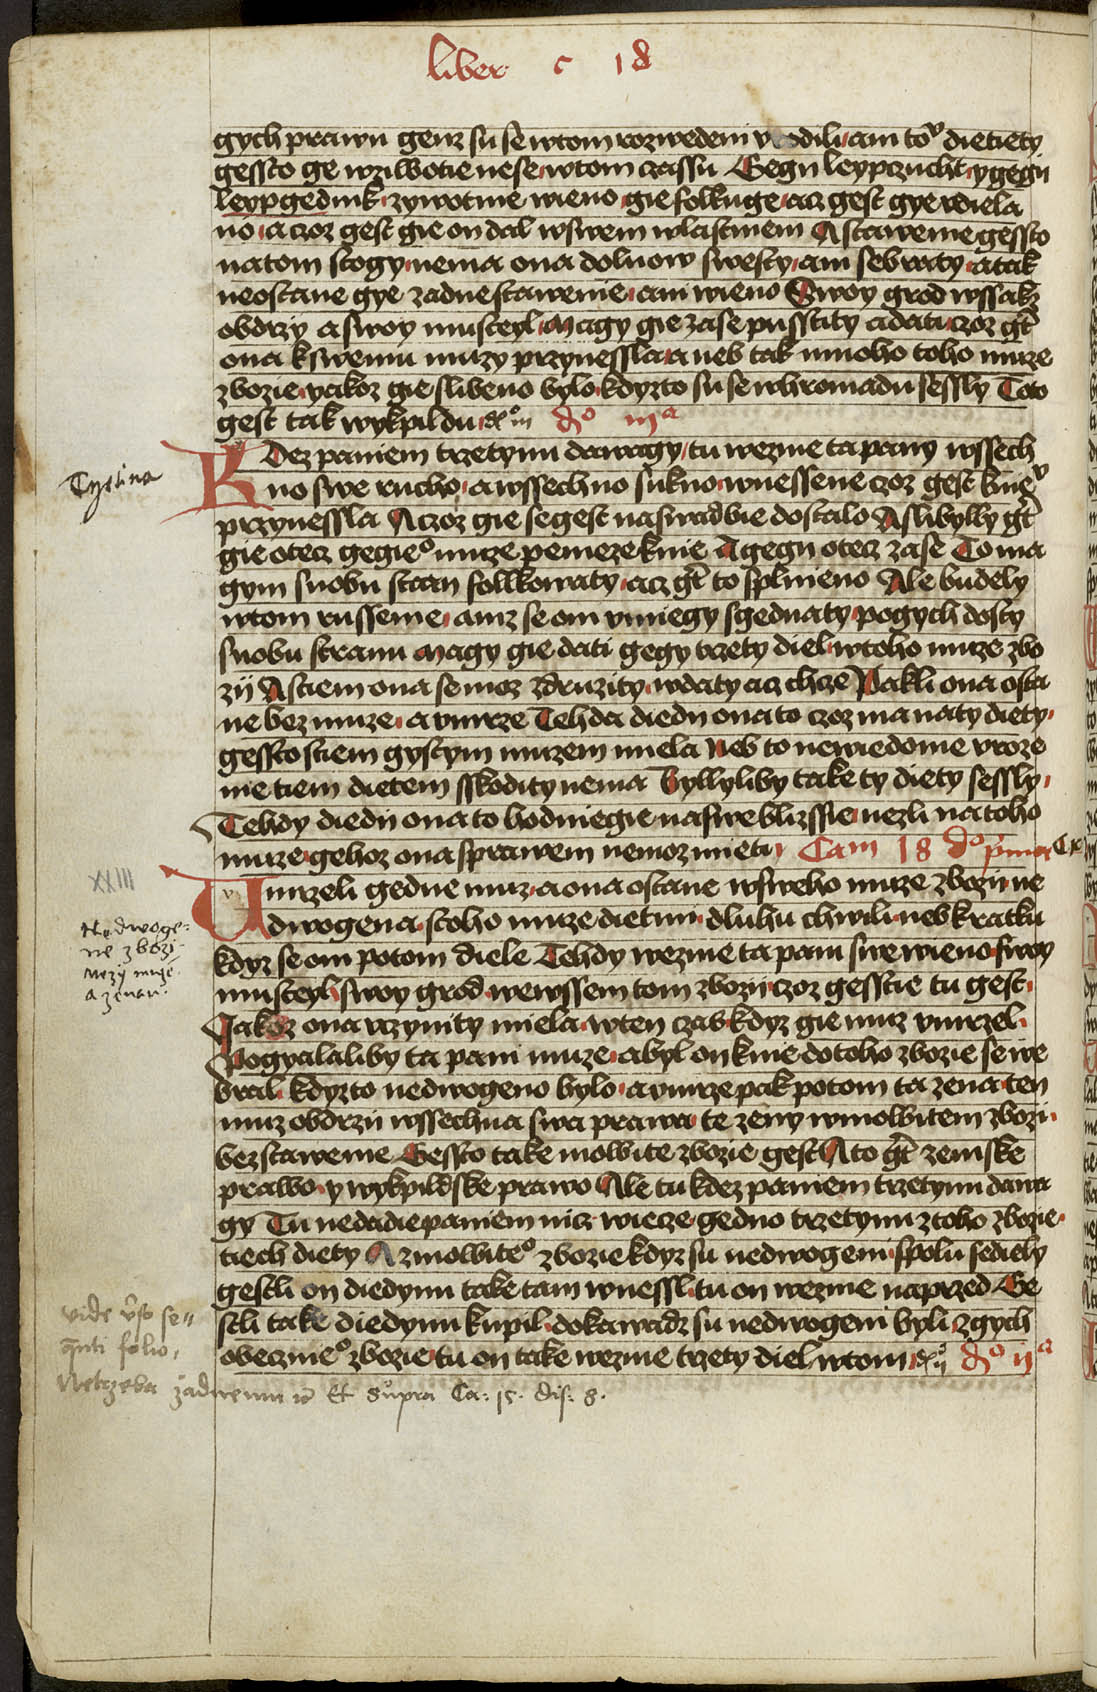 liber c 18
gych prawu genz su se wtom rozwedeni vrodili ani toº dietiety
gessto ge wziwotie nese wtom czassu Gegn leypczucht y gegn
leypgedink zywotnie wieno gie folkuge acz gest gye vdiela
no a czoz gest gie on dal wswem wlastniem A stawenie gessto
natom stogy nema ona doluow swesty ani sebraty a tak
neostane gye zadne stawenie ani wieno Swoy grod wssakz
obdrzy a swoy musteyl Magy gie zase pussтity a dati czoz gt
ona kswemu muzy przynessla a neb tak mnoho toho muze
zbozie yakoz gie slibeno bylo kdyzto su se whromadu sessly Toto
gest tak wykpildu dº iiiª
Kdez paniem trzetynu dawagy tu wezme ta pany wssech
Trzetina
no swe rucho a wssechno sukno wnessene czoz gest knieº
przynessla A czoz gie se gest naswadbie dostalo A slibylby gt
gie otecz gegieº muze penieze knie A gegn otecz zase To ma
gym snobu stran follkowaty acz gt to splnieno Ale budely
wtom russenie aniz se oni vmiegy sgednaty pogych dosty
snobu stranu Magy gie dati gegy trzety diel wtoho muze zbo
zij A stiem ona se moz zdruzity wdaty acz chcze Pakli ona osta
ne bez muze a vmrze Tehda diedy ona to czoz ma naty diety
gessto stiem gystym muzem miela Neb to newiedome vroze
nie tiem dietem sskodity nema Byllyliby take ty diety sessly
Tehdy diedy ona to hodniegie naswe blizssie nezli natoho
muze gehoz ona sprawem nemoz mieti Cam 18 dº prima
XXIII
Vmrzeli gedne muz a ona ostane wsweho muze zbozij ne
dwogena stoho muze dietmi dluhu chwili neb kratku
Nedwoge:
ne zbozi
mezy muze
a zenau.
kdyz se oni potom diele Tehdy wezme ta pani swe wieno swoy
musteyl swoy grod wewssem tom zbozij czoz gesstie tu gest
Jakoz ona vczynity miela wten czas kdyz gie muz vmrzel
Pogyalaliby ta pani muze a byl on knie dotoho zbozie se we
bral kdyzto nedwogeno bylo a vmrze pak potom ta zena ten
muz obdrzij wssechna swa prawa te zeny wmowitem zbozi
bez stawenie Gessto take mowite zbozie gest A to gt zemske
prawo y wykpildske prawo Ale tu kdez paniem trzetynu dawa
gy Tu nedadie paniem nicz wiecze gedno trzetynu ztoho zbozie
tiech diety A zmowiteº zbozie kdyz su nedwogeni spolu sediely
gestli on diedynu take tam wnessl tu on wezme naprzed Ge
stli take diedynu kupil dokawadz su nedwogeni byli zgych
obeczneº zbozie tu on take wezme trzety diel wtom dº iiª
vide vso se"
quenti folio,
Netrzeba zadnemu ic Et supra Ca: 15. dis: 8.